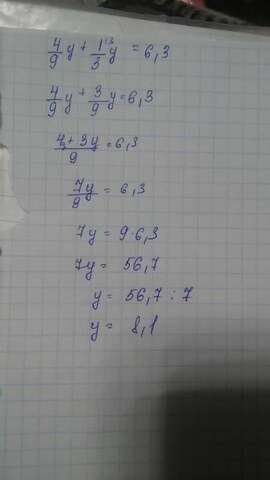 4/9 y + 1/3 ^3 y = 6,3
4/9 y + 3/9 y = 6,3
4y + 3y/9 = 6,3
7y/9 = 6,3
7y = 9·6,3
7y = 56,7
y = 56,7 : 7
y = 8,1